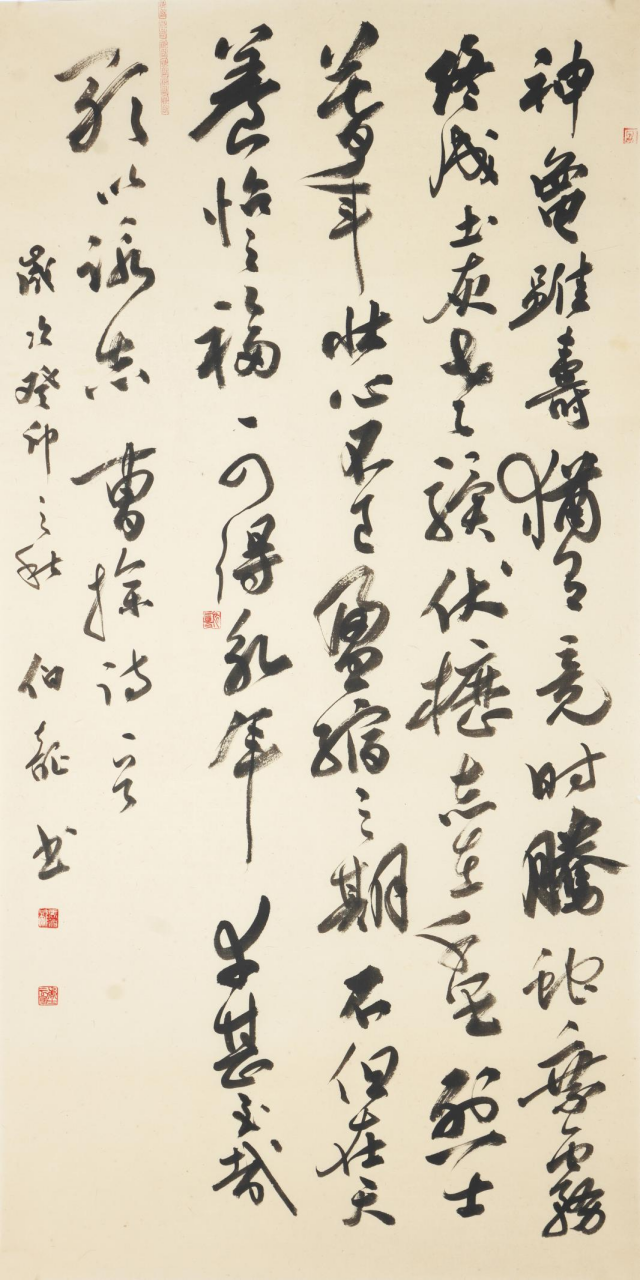 神龜雖壽猶有竟時騰蛇乘霧
終成土灰老驥伏櫪志在千里烈士
暮年壯心不已盈縮之期不但在天
養怡之福可得永年幸甚至哉
歌以詠志 曹操詩一首
歲次癸卯之秋 伯龍書